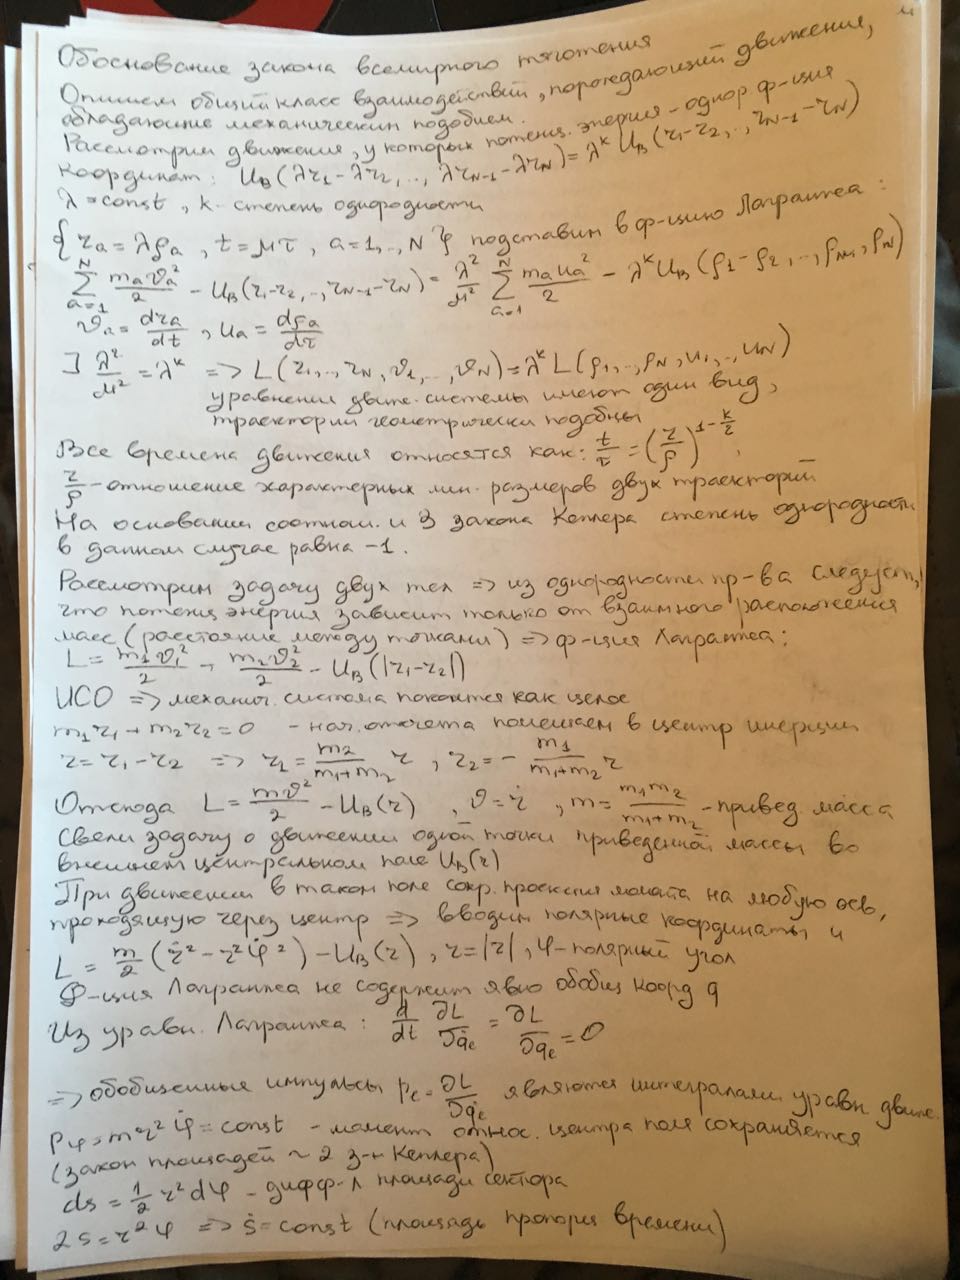 Обоснование закона всемирного тяготения
Опишем общий класс взаимодействий, порождающий движения,
обладающие механическим подобием.
Рассмотрим движения, у которых потенц. энергия - однор. ф-ция
координат: U_B(λr_1-λr_2,..,λr_{N-1}-λr_N)=λ^k U_B(r_1-r_2,..,r_{N-1}-r_N)
λ=const, k- степень однородности
{r_a=λρ_a, t=μτ, a=1,..,N} подставим в ф-цию Лагранжа:
\sum_{a=1}^{N} \frac{m_a v_a^2}{2} - U_B(r_1-r_2,..,r_{N-1}-r_N) = \frac{λ^2}{μ^2} \sum_{a=1}^{N} \frac{m_a u_a^2}{2} - λ^k U_B(ρ_1-ρ_2,..,ρ_{N-1},ρ_N)
v_a=\frac{dr_a}{dt}, u_a=\frac{dρ_a}{dτ}
] \frac{λ^2}{μ^2}=λ^k => L(r_1,..,r_N,v_1,..,v_N)=λ^k L(ρ_1,..,ρ_N,u_1,..,u_N)
уравнения движ. системы имеют один вид,
траектории геометрически подобны
Все времена движения относятся как: \frac{t}{τ}=(\frac{r}{ρ})^{1-\frac{k}{2}},
\frac{r}{ρ}-отношение характерных лин. размеров двух траекторий
На основании соотнош. и 3 закона Кеплера степень однородности
в данном случае равна -1.
Рассмотрим задачу двух тел => из однородности пр-ва следует,
что потенц энергия зависит только от взаимного расположения
масс (расстояние между точками) => ф-ция Лагранжа:
L=\frac{m_1 v_1^2}{2} - \frac{m_2 v_2^2}{2} - U_B(|r_1-r_2|)
ИСО => механич. система покоится как целое
m_1 r_1+m_2 r_2=0 - нач. отсчета помещаем в центр инерции
r=r_1-r_2 => r_1=\frac{m_2}{m_1+m_2} r, r_2=-\frac{m_1}{m_1+m_2} r
Отсюда L=\frac{mv^2}{2} - U_B(r), v=\dot{r}, m=\frac{m_1 m_2}{m_1+m_2} - привед. масса
Свели задачу о движении одной точки приведенной массы во
внешнем центральном поле U_B(r)
При движении в таком поле сохр. проекция момента на любую ось,
проходящую через центр => вводим полярные координаты и
L=\frac{m}{2}(\dot{r}^2-r^2\dot{φ}^2)-U_B(r), r=|r|, φ-полярный угол
Ф-ция Лагранжа не содержит явно обобщ коорд q
Из уравн. Лагранжа: \frac{d}{dt} \frac{∂L}{∂\dot{q}_e}=\frac{∂L}{∂q_e}=0
=> обобщенные импульсы p_e=\frac{∂L}{∂\dot{q}_e} являются интегралами уравн движ.
p_φ=mr^2\dot{φ}=const - момент относ. центра поля сохраняется
(закон площадей ~ 2 з-н Кеплера)
ds=\frac{1}{2}r^2dφ - дифф-л площади сектора
2s=r^2φ => \dot{s}=const (площадь пропорц времени)